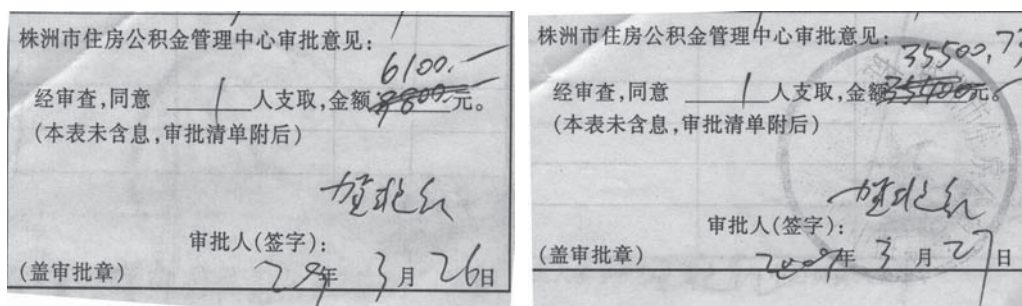 株洲市住房公积金管理中心审批意见:
6100.-
经审查,同意 1 人支取,金额 元。
(本表未含息,审批清单附后)
审批人(签字):
(盖审批章) 年 3 月 26 日
株洲市住房公积金管理中心审批意见:
35500.73
经审查,同意 1 人支取,金额 35400 元。
(本表未含息,审批清单附后)
审批人(签字):
(盖审批章) 2009 年 3 月 27 日